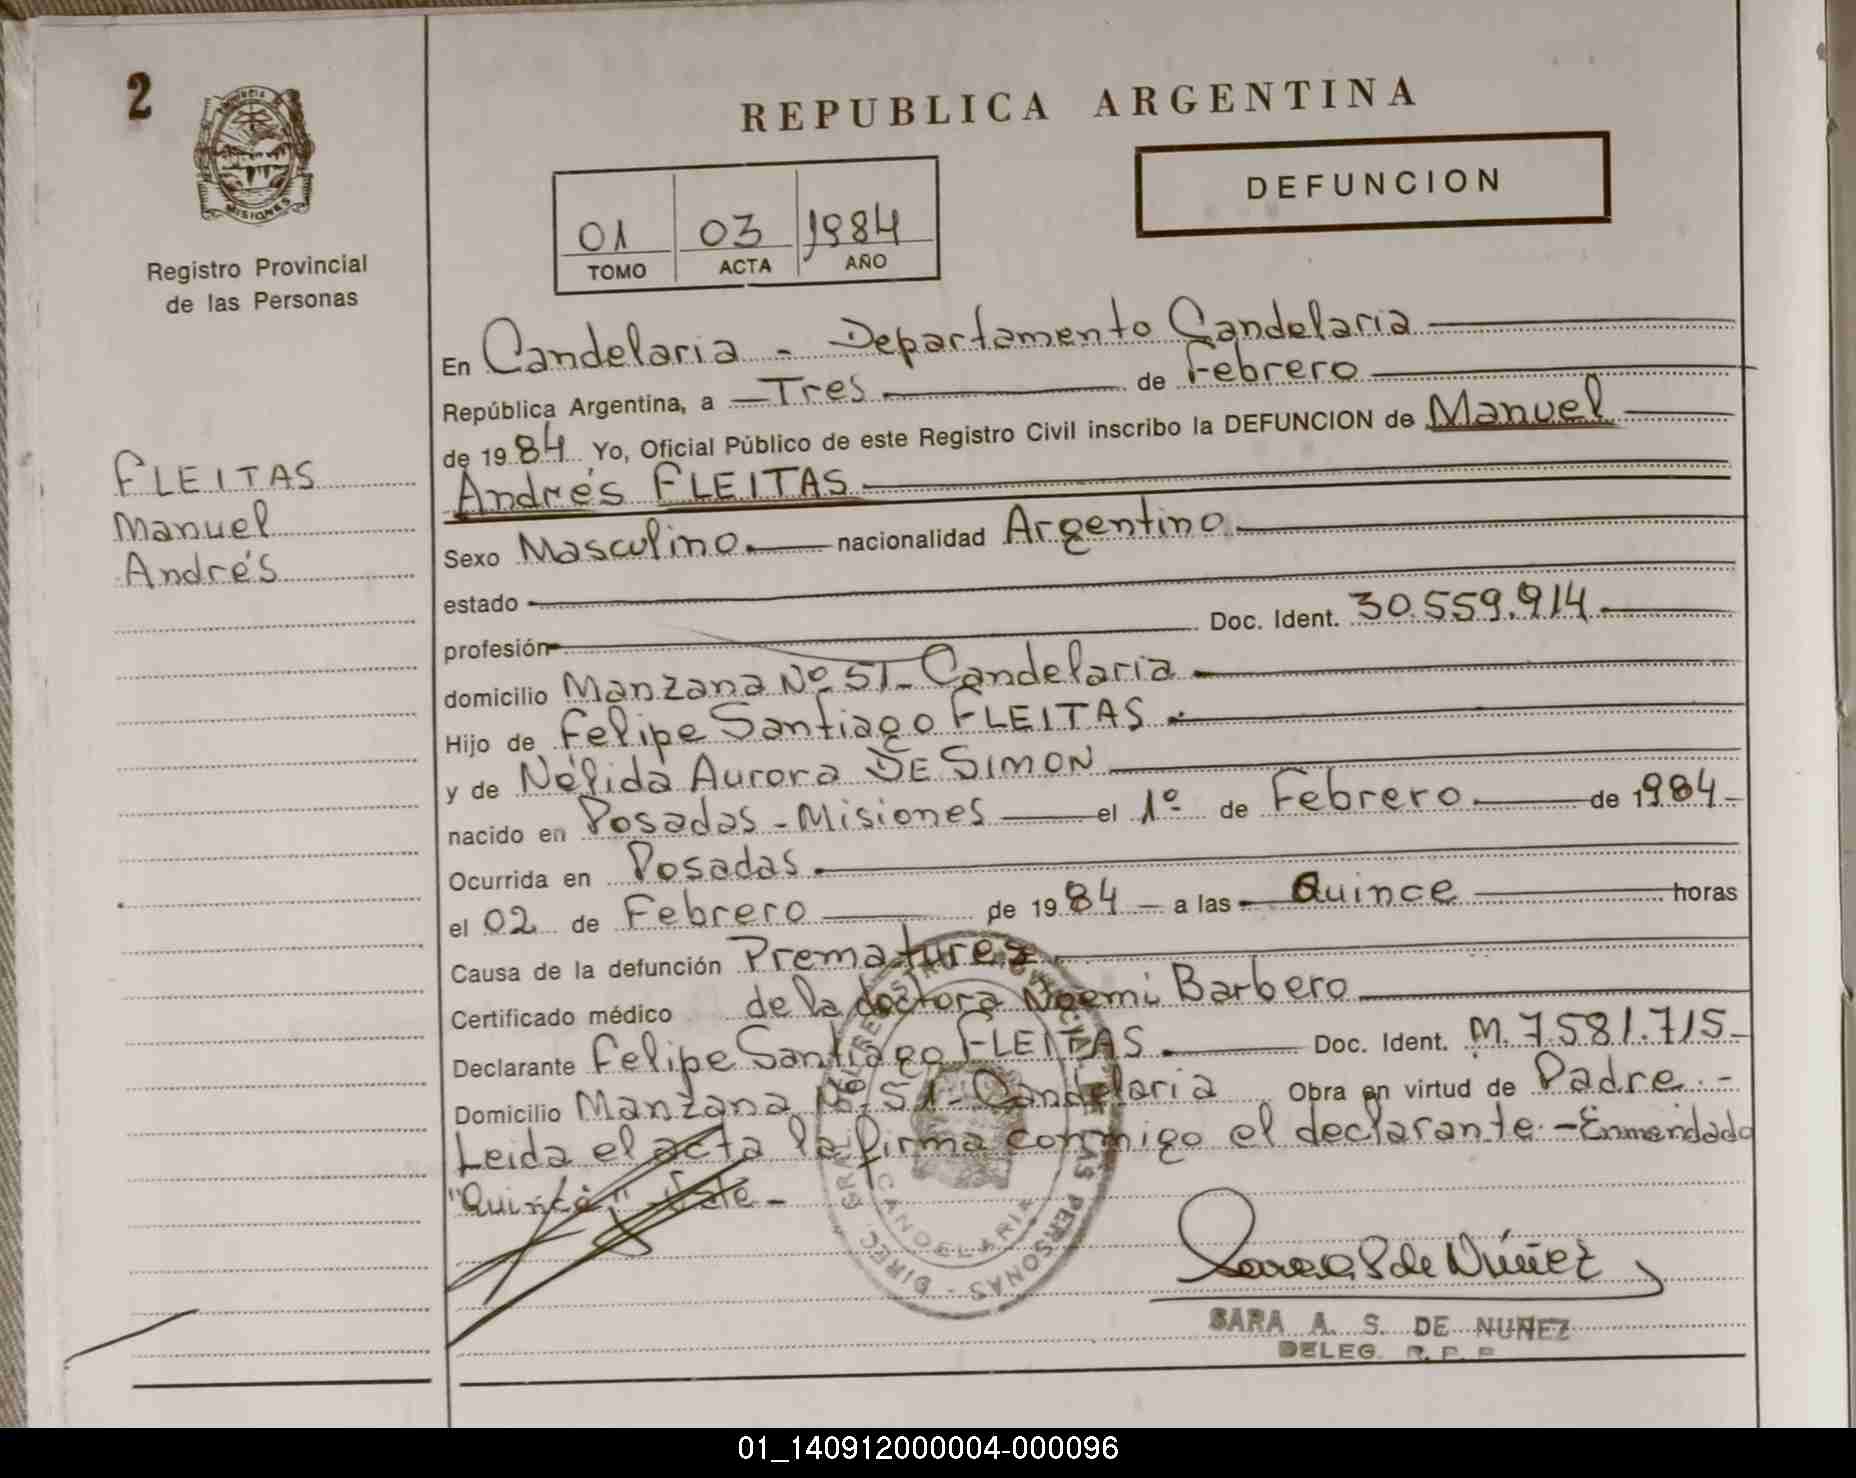 2
PROVINCIA DE
MISIONES
Registro Provincial
de las Personas
FLEITAS
Manuel
Andrés
REPUBLICA ARGENTINA
DEFUNCION
01 03 1984
TOMO ACTA AÑO
En Candelaria - Departamento Candelaria
República Argentina, a Tres de Febrero
de 1984 Yo, Oficial Público de este Registro Civil inscribo la DEFUNCION de Manuel
Andrés FLEITAS
Sexo Masculino. nacionalidad Argentino.
estado
profesión Doc. Ident. 30.559.914.
domicilio Manzana Nº 51 - Candelaria
Hijo de Felipe Santiago FLEITAS.
y de Nélida Aurora DE SIMON
nacido en Posadas - Misiones el 1º de Febrero de 1984
Ocurrida en Posadas.
el 02 de Febrero de 1984 a las Quince horas
Causa de la defunción Prematurez
Certificado médico de la doctora Noemi Barbero
Declarante Felipe Santiago FLEITAS. Doc. Ident. M. 7.581.715
Domicilio Manzana Nº 51 - Candelaria Obra en virtud de Padre. -
Leida el acta la firma conmigo el declarante. - Enmendado
"Quince" Vale -
CANDELARIA
Sara S de Núñez
SARA A. S. DE NUÑEZ
DELEG. R. P. P.
01_140912000004-000096